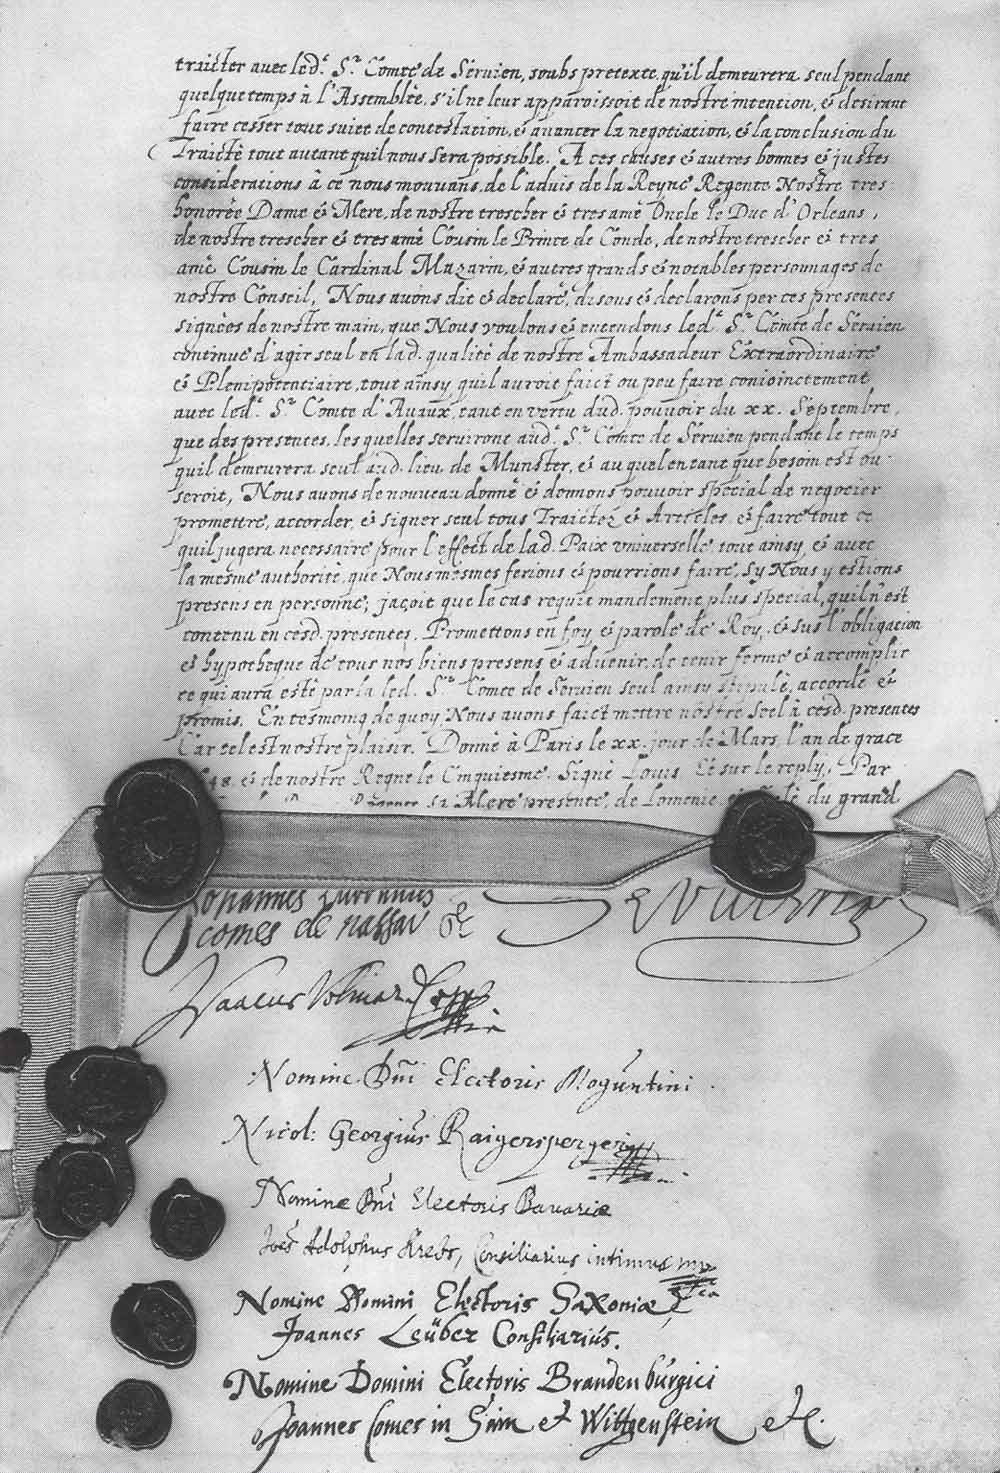 traicter avec led.^t S.^r Comte de Servien, soubs pretexte qu'il demeurera seul pendant
quelque temps à l'Assemblèe, s'il ne leur apparoissoit de nostre intention, & desirant
faire cesser tout suiet de contestation, & auancer la negotiation, & la conclusion du
Traictè tout autant quil nous sera possible. A ces causes & autres bonnes & justes
considerations à ce nous mouvans, de l'aduis de la Reyne Regente Nostre tres
honorèe Dame & Mere, de nostre trescher & tres amè Oncle le Duc d'Orleans,
de nostre trescher & tres amè Cousin le Prince de Conde, de nostre trescher & tres
amè Cousin le Cardinal Mazarin, & autres grands & notables personnages de
nostre Conseil, Nous avons dit & declarè, disons & declarons per ces presentes
signèes de nostre main, que Nous voulons & entendons led.^t S.^r Comte de Servien
continue d'agir seul en lad. qualitè de nostre Ambassadeur Extraordinaire
& Plenipotentiaire, tout ainsy quil auroit faict ou peu faire conioinctement
avec led.^t S.^r Comte d'Avaux, tant en vertu dud. pouvoir du xx. Septembre,
que des presentes, les quelles serviront aud.^t S.^r Comte de Servien pendant le temps
quil demeurera seul aud. lieu de Munster, & au quel en tant que besoin est ou
seroit, Nous avons de nouveau donnè & donnons pouvoir special de negocier
promettre, accorder, & signer seul tous Traictez & Articles, & faire tout ce
quil jugera necessaire pour l'effect de lad. Paix universelle, tout ainsy, & avec
la mesme authoritè, que Nous mesmes ferions & pourrions faire, sy Nous y estions
presens en personne; jaçoit que le cas requit mandement plus special, quil n'est
contenu en cesd. presentes. Promettons en foy, & parole de Roy, & sus l'obligation
& hypotheque de tous nos biens presens & advenir, de tenir ferme & accomplir
ce qui aura estè par la led. S.^r Comte de Servien seul ainsy stipulè, accordè &
promis. En tesmong de quoy, Nous avons faict mettre nostre Seel à cesd. presentes
Car tel est nostre plaisir. Donnè à Paris le xx. jour de Mars, l'an de grace
48, & de nostre Regne le Cinquiesme. Signè Louis. Et sur le reply, Par
Regente sa Mere presente, de Lomenie, & Selè du grand
Johannes
comes de nassau &c
Servien
Isaacus Volmar
Nomine Dñi Electoris Moguntini.
Nicol: Georgius Raigersperger
Nomine Dñi Electoris Bavariæ
Joẽs Adolphus Krebs, Consiliarius intimus mp
Nomine Domini Electoris Saxoniæ
Joannes Leüber Consiliarius.
Nomine Domini Electoris Brandenburgici
Joannes Comes in Sain et Wittgenstein etc.